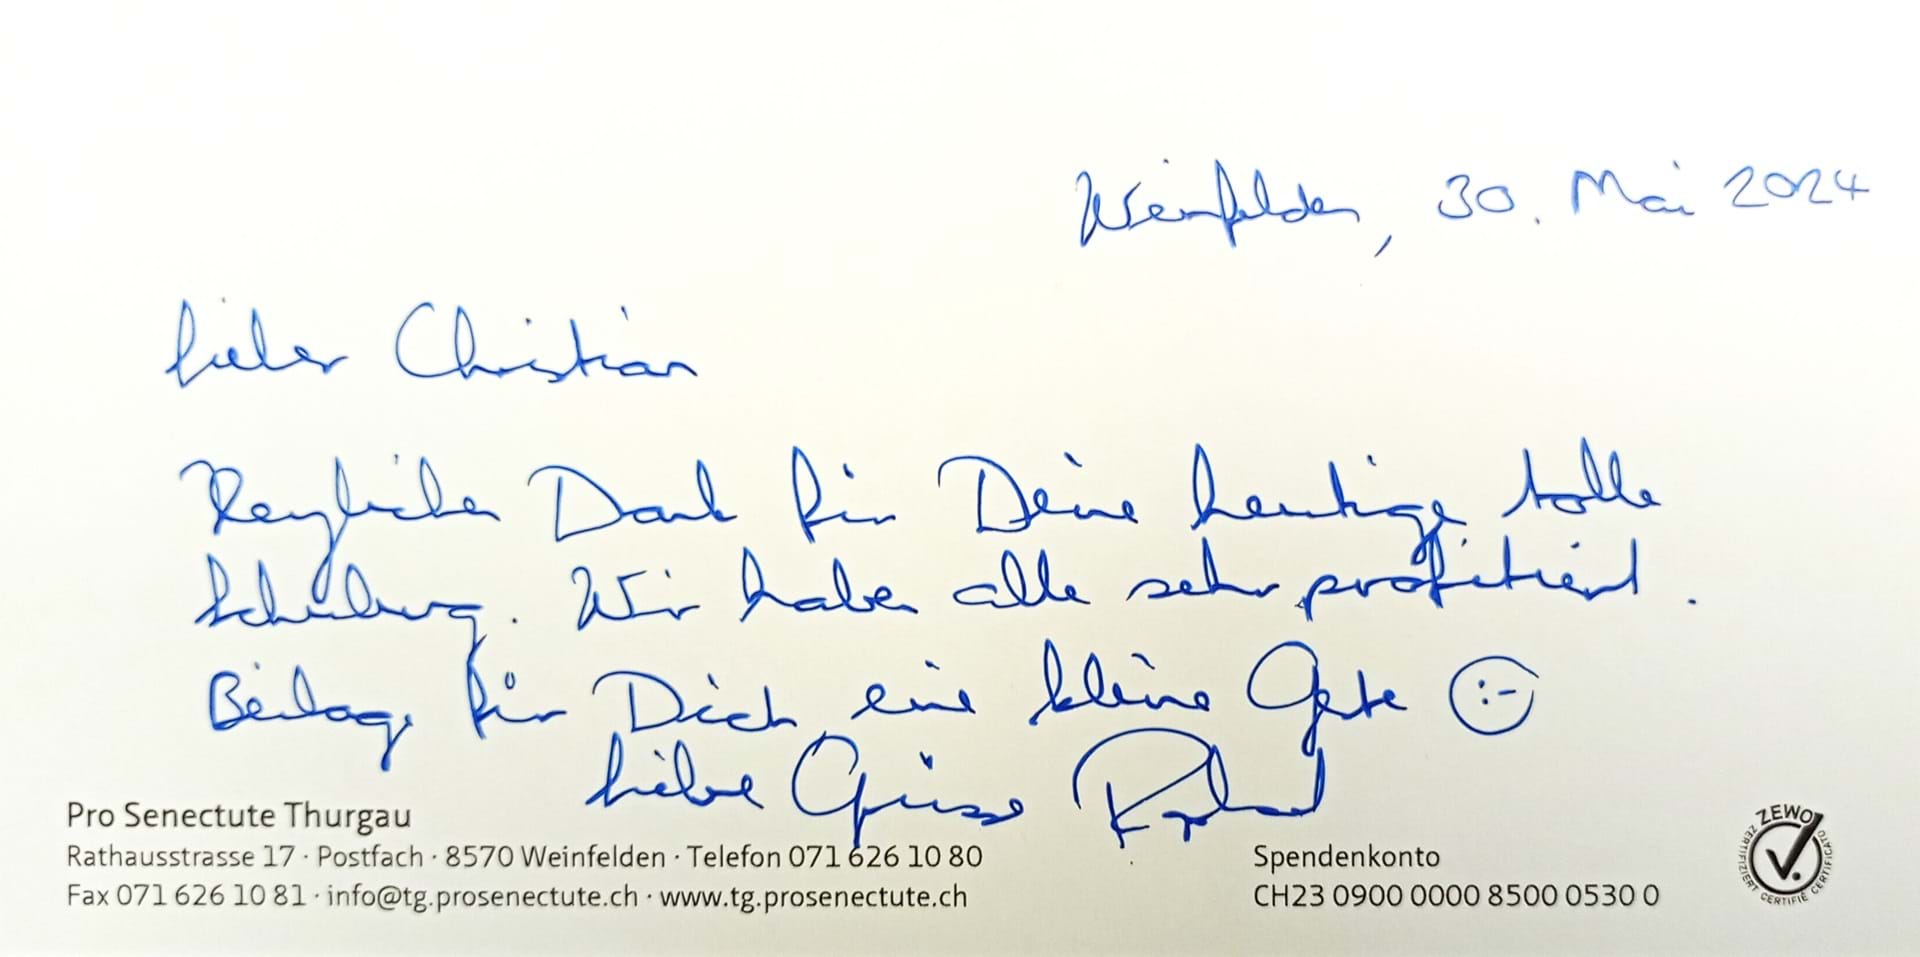 Weinfelden, 30. Mai 2024
Lieber Christian
Herzlichen Dank für Deine heutige tolle
Schulung. Wir haben alle sehr profitiert.
Beilage für Dich eine kleine Geste :-)
Liebe Grüsse
Pro Senectute Thurgau
Rathausstrasse 17 · Postfach · 8570 Weinfelden · Telefon 071 626 10 80
Fax 071 626 10 81 · info@tg.prosenectute.ch · www.tg.prosenectute.ch
Spendenkonto
CH23 0900 0000 8500 0530 0
ZEWO
ZERTIFIZIERT CERTIFIÉ CERTIFICATO